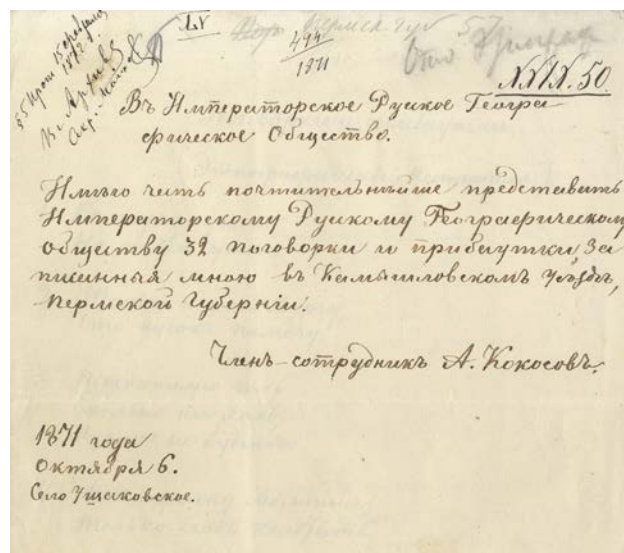 LV
494
1871
XXIX. 50.
Въ Императорское Руское Геогра
фическое Общество.
Имѣю честь почтительнѣйше представить
Императорскому Рускому Географическому
обществу 32 поговорки и прибаутки, за
писанныя мною въ Камышловскомъ Уѣздѣ,
Пермской Губерніи.
Членъ-сотрудникъ А. Кокосовъ.
1871 года
Октября 6.
Село Ушаковское.